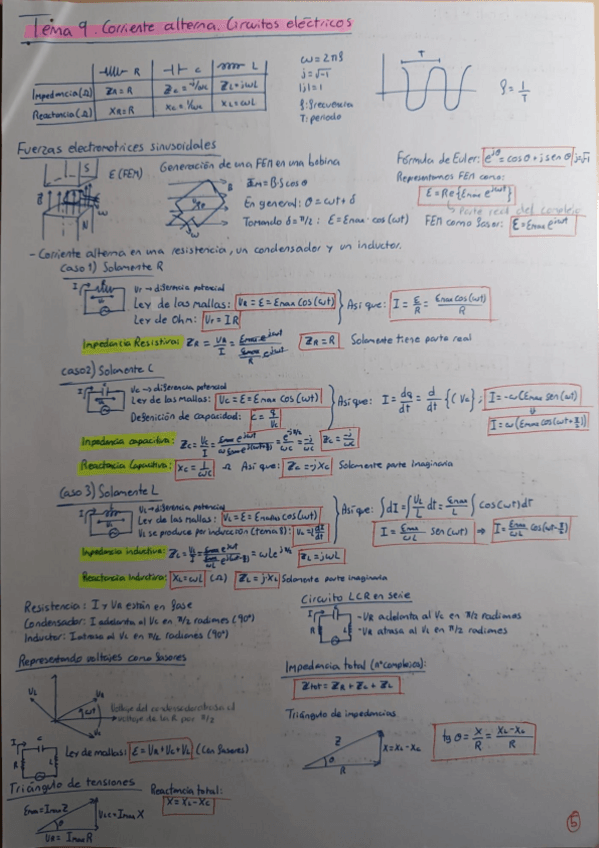 Tema 9. Corriente alterna. Circuitos eléctricos
R C L
Impedancia (Ω) Z_R = R Z_C = -j/ωC Z_L = jωL
Reactancia (Ω) X_R = R X_C = 1/ωC X_L = ωL
ω = 2πf
j = √-1
|j| = 1
f: frecuencia
T: periodo
T
f = 1/T
Fuerzas electromotrices sinusoidales
S E (FEM)
N
Generación de una FEM en una bobina
B
ω
En general: θ = ωt + δ
Tomando δ = π/2: E = Emax · cos(ωt)
Fórmula de Euler: e^jθ = cosθ + j senθ j = √-1
Representamos FEM como:
E = Re{Emax e^jωt}
Parte real del complejo
FEM como fasor: E = Emax e^jωt
- Corriente alterna en una resistencia, un condensador y un inductor.
Caso 1) Solamente R
V_R → diferencia potencial
Ley de las mallas: V_R = E = Emax cos(ωt)
Ley de Ohm: V_R = IR
Así que: I = E/R = Emax cos(ωt)/R
Impedancia Resistiva: Z_R = V_R/I = Emax e^jωt / Emax/R e^jωt Z_R = R Solamente tiene parte real
caso 2) Solamente C
V_C → diferencia potencial
Ley de las mallas: V_C = E = Emax cos(ωt)
Definición de capacidad: C = q/V_C
Así que: I = dq/dt = d/dt {C V_C}; I = -ωC Emax sen(ωt)
I = ωC Emax cos(ωt + π/2)
Impedancia capacitiva: Z_C = V_C/I = = -j/ωC Z_C = -j/ωC
Reactancia Capacitiva: X_C = 1/ωC Ω Así que: Z_C = -jX_C Solamente parte imaginaria
Caso 3) Solamente L
V_L → diferencia potencial
Ley de las mallas: V_L = E = Emax cos(ωt)
V_L se produce por inducción (tema 8): V_L = L dI/dt
Así que: ∫dI = ∫V_L/L dt = Emax/L ∫cos(ωt)dt
I = Emax/ωL sen(ωt) ⇒ I = Emax/ωL cos(ωt - π/2)
Impedancia inductiva: Z_L = V_L/I = = ωL e^jπ/2 Z_L = jωL
Reactancia Inductiva: X_L = ωL (Ω) Z_L = jX_L Solamente parte imaginaria
Resistencia: I y V_R están en fase
Condensador: I adelanta al V_C en π/2 radianes (90°)
Inductor: I atrasa al V_L en π/2 radianes (90°)
Circuito LCR en serie
I C
R L
- V_R adelanta al V_C en π/2 radianes
- V_R atrasa al V_L en π/2 radianes
Representando voltajes como fasores
V_L V_R
ωt
V_C
Voltaje del condensador atrasa al
voltaje de la R por π/2
Impedancia total (nº complejo):
Z_tot = Z_R + Z_C + Z_L
Triángulo de impedancias
Z X = X_L - X_C
θ
R
tg θ = X/R = X_L - X_C/R
I C
R L
Ley de mallas: E = V_R + V_C + V_L (Con fasores)
Triángulo de tensiones
Emax = Imax Z V_LC = Imax X
θ
V_R = Imax R
Reactancia total:
X = X_L - X_C
5